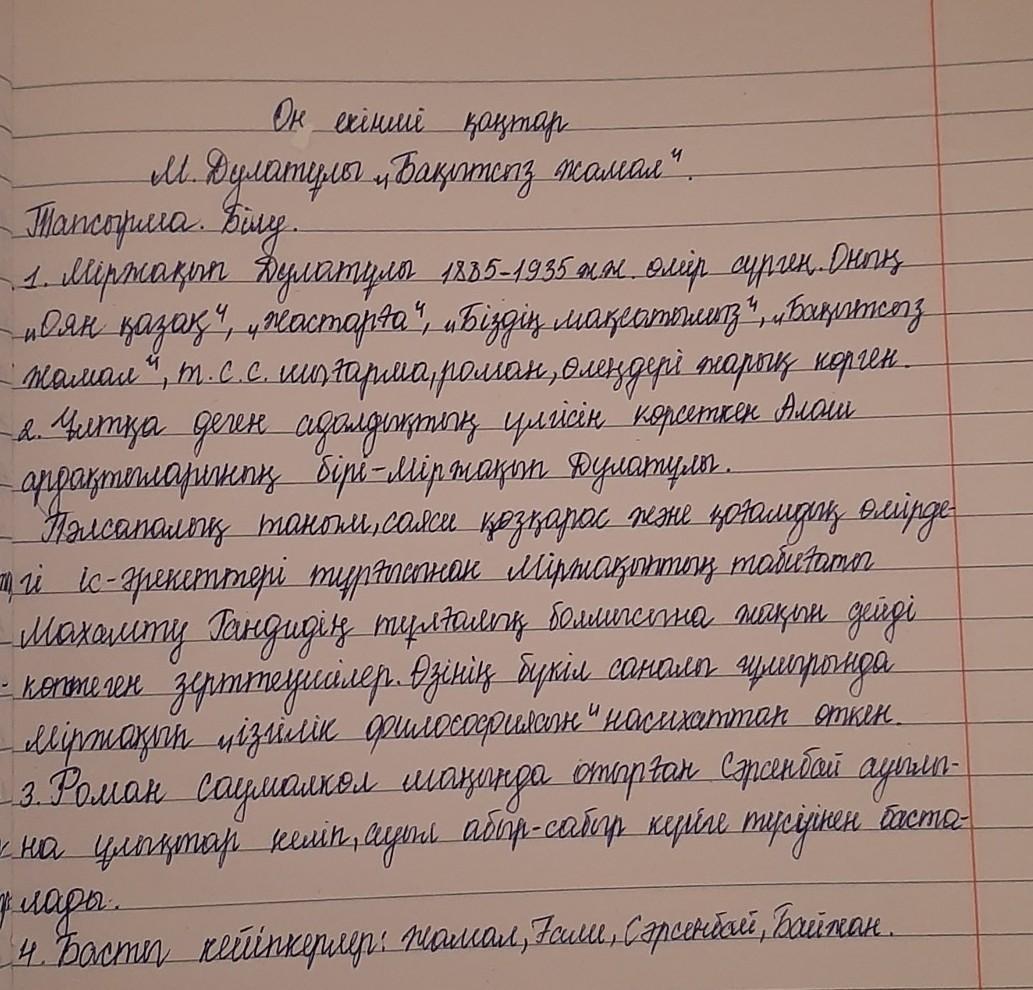 Он екінші қаңтар
М. Дулатұлы „Бақытсыз Жамал".
Тапсырма. Білу.
1. Міржақып Дулатұлы 1885-1935 жж. өмір сүрген. Оның
„Оян қазақ", „Жастарға", „Біздің мақсатымыз", „Бақытсыз
Жамал", т. с. с. шығарма, роман, өлеңдері жарық көрген.
2. Ұлтқа деген адалдықтың үлгісін көрсеткен Алаш
ардақтыларының бірі - Міржақып Дулатұлы.
Пәлсапалық таным, саяси көзқарас және қоғамдық өмірде-
гі іс-әрекеттері тұрғысынан Міржақыптың табиғаты
Махамту Гандидің тұлғалық болмысына жақын дейді
көптеген зерттеушілер. Өзінің бүкіл саналы ғұмырында
Міржақып „ізгілік философиясын" насихаттап өткен.
3. Роман Саумалкөл маңында отырған Сәрсенбай ауылы-
на ұлықтар келіп, ауыл абыр-сабыр күйге түсуінен баста-
лады.
4. Басты кейіпкерлер: Жамал, Ғали, Сәрсенбай, Байжан.